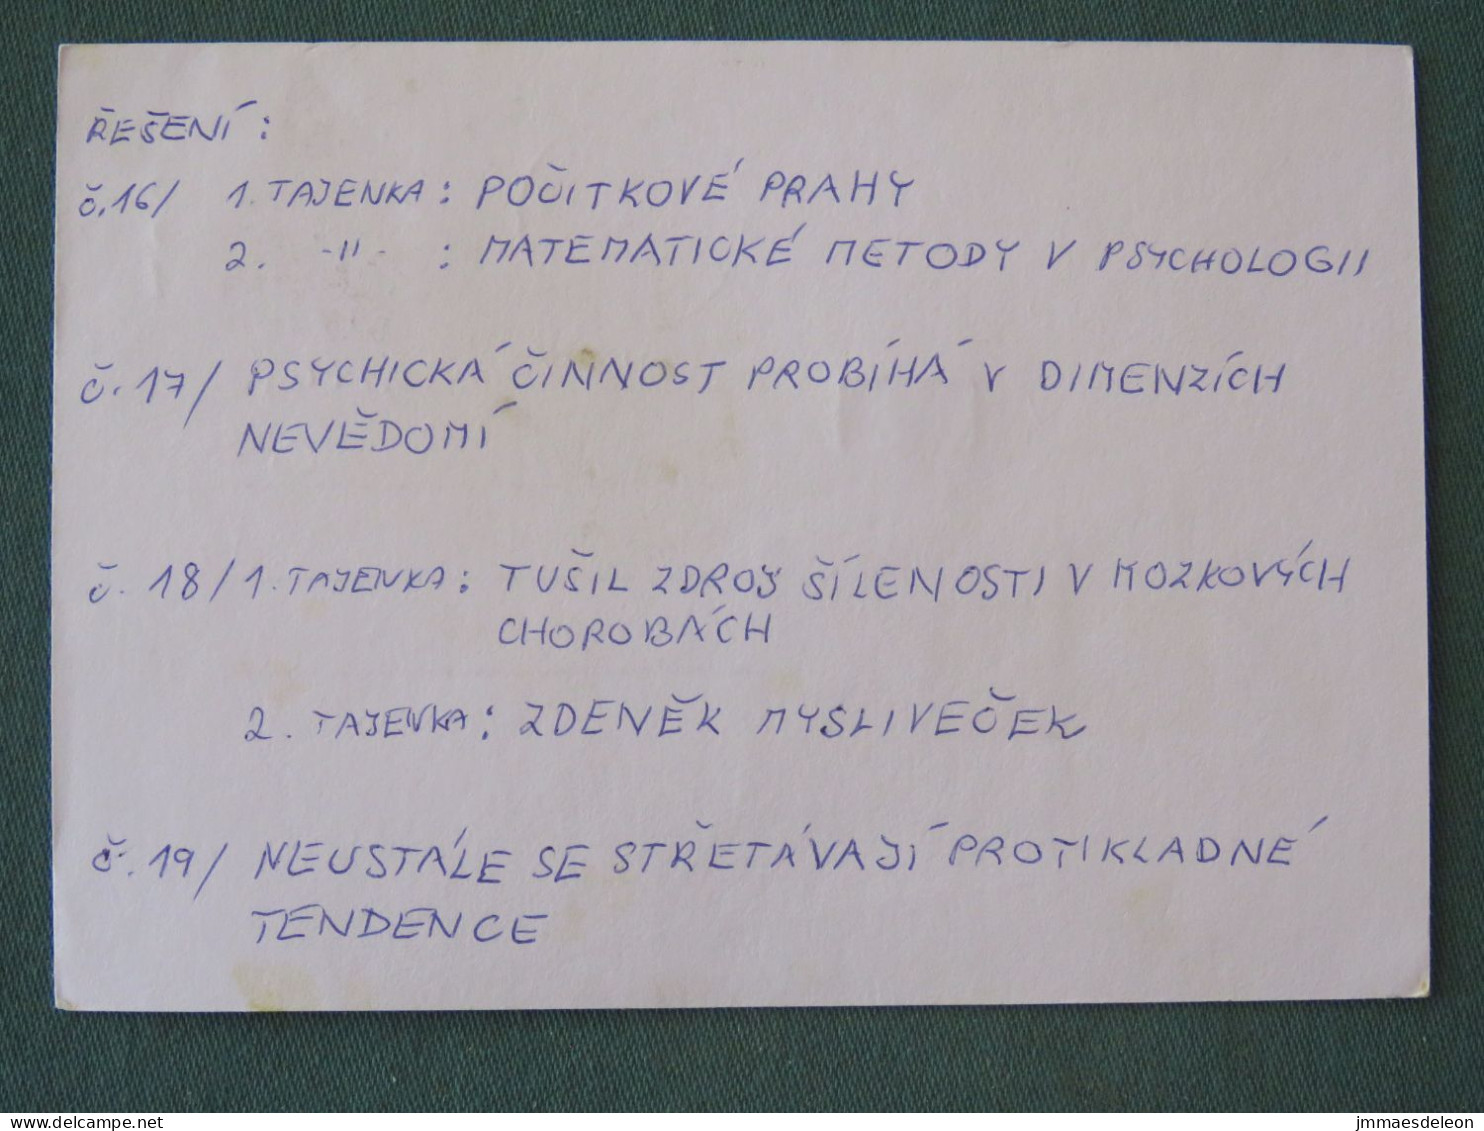 ŘEŠENÍ:
č.16/ 1. TAJENKA: POČITKOVÉ PRAHY
2. -"- : MATEMATICKÉ METODY V PSYCHOLOGII
č.17/ PSYCHICKÁ ČINNOST PROBÍHÁ V DIMENZÍCH
NEVĚDOMÍ
č.18/ 1. TAJENKA: TUŠIL ZDROJ ŠÍLENOSTI V MOZKOVÝCH
CHOROBÁCH
2. TAJENKA: ZDENĚK MYSLIVEČEK
č.19/ NEUSTÁLE SE STŘETÁVAJÍ PROTIKLADNÉ
TENDENCE
www.delcampe.net
jmmaesdeleon